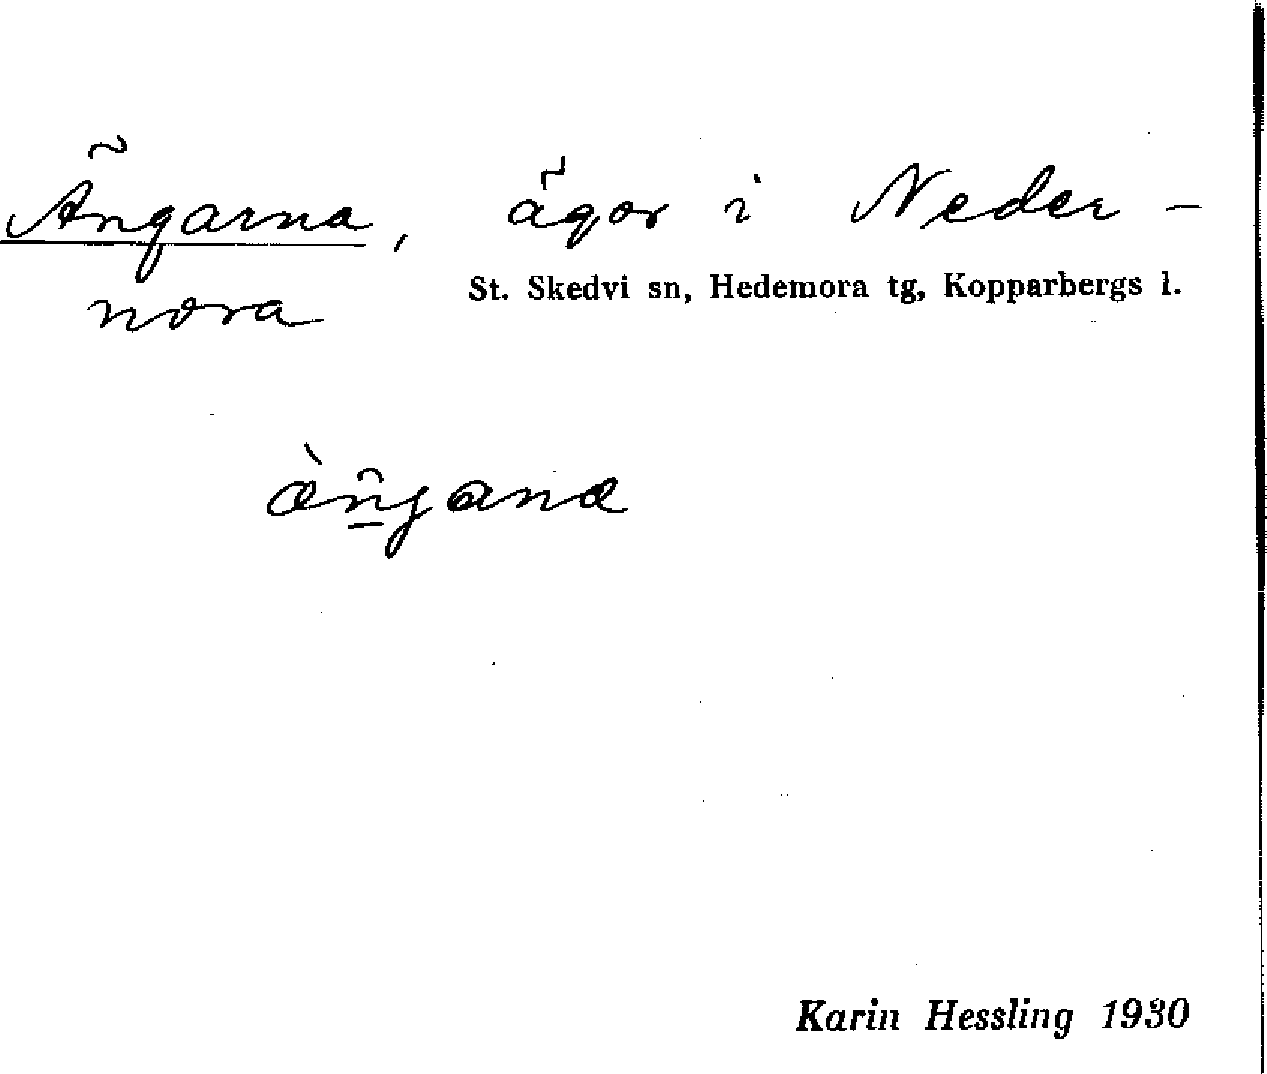 Ängarna, ägor i Neder-
St. Skedvi sn, Hedemora tg, Kopparbergs l.
nora
æ̀n̠̑gana
Karin Hessling 1930